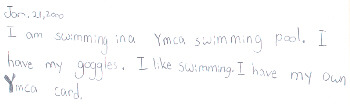 Jan. 21, 2000
I am swimming in a Ymca swimming pool. I
have my goggles. I like swimming. I have my own
Ymca card.